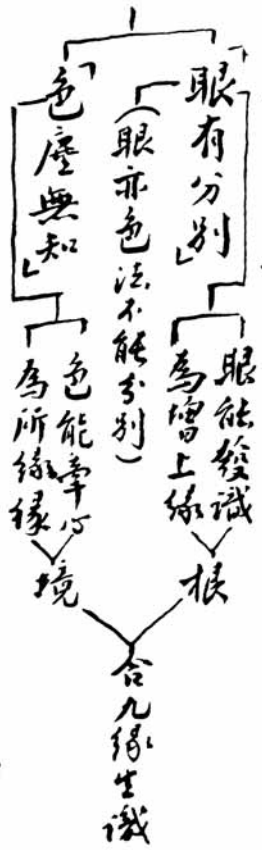 「眼有分別」
(眼亦色法不能分別)
「色塵無知」
眼能發識
為增上緣
色能牽心
為所緣緣
根
境
合九緣生識